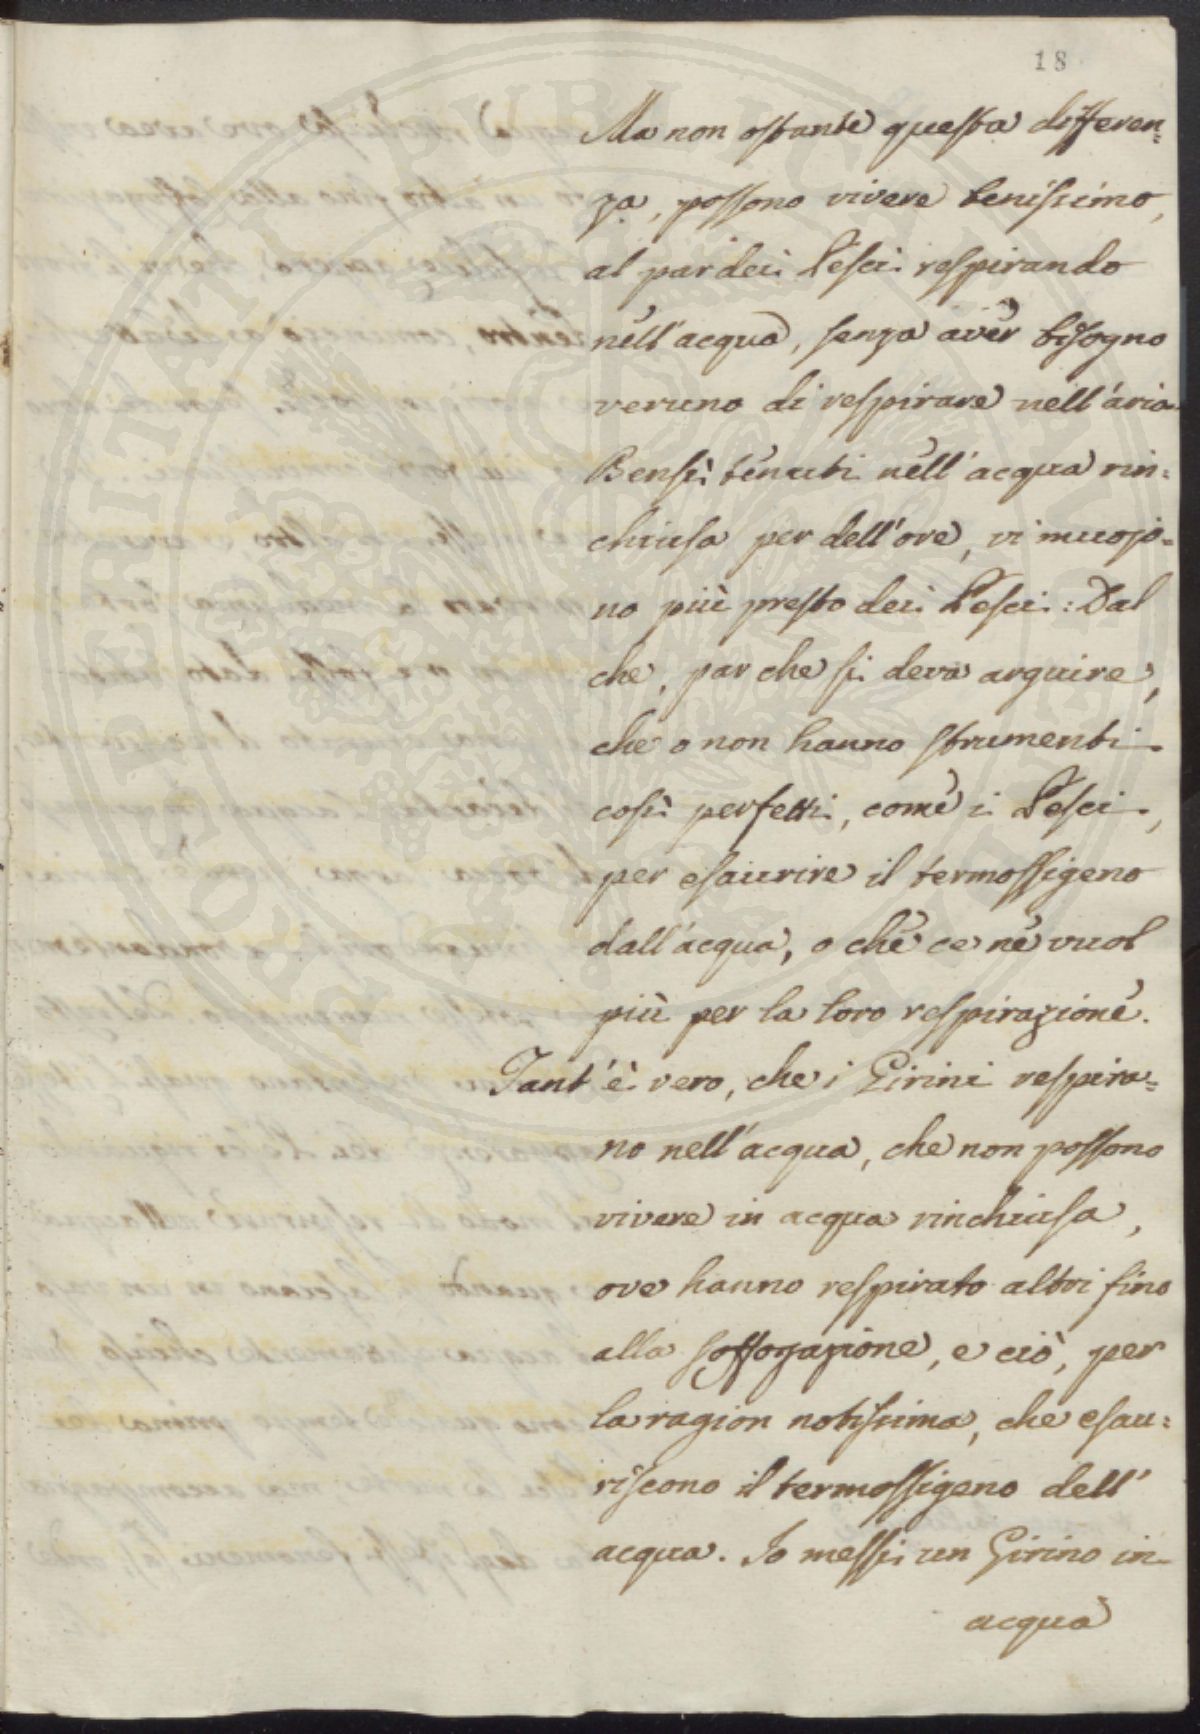 18
Ma non ostante questa differen=
za, possono vivere benissimo,
al par dei Pesci respirando
nell'acqua, senza aver bisogno
veruno di respirare nell'aria.
Bensì tenuti nell'acqua rin=
chiusa per dell'ore, vi muojo=
no più presto dei Pesci: Dal
che, par che si deva arguire,
che o non hanno strumenti
così perfetti, come i Pesci,
per esaurire il termossigeno
dall'acqua, o che ce ne vuol
più per la loro respirazione.
Tant'è vero, che i Girini respira=
no nell'acqua, che non possono
vivere in acqua rinchiusa,
ove hanno respirato altri fino
alla soffogazione, e ciò, per
la ragion notissima, che esau=
riscono il termossigeno dell'
acqua. Io messi un Girino in
acqua